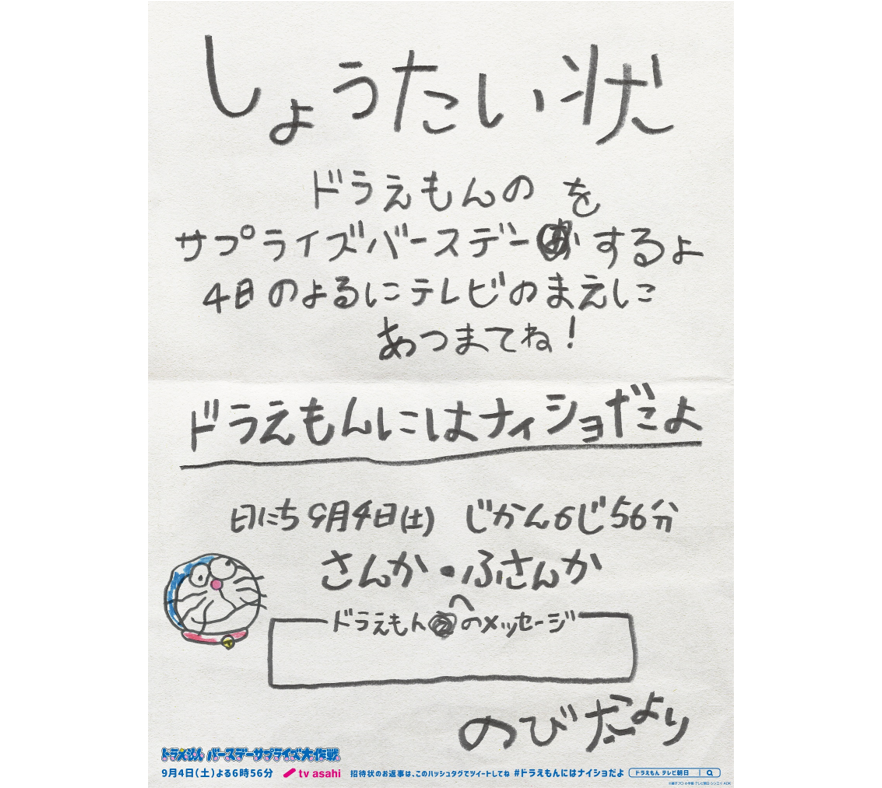 しょうたい状
ドラえもんの を
サプライズバースデーするよ
4日のよるにテレビのまえに
あつまてね!
ドラえもんにはナイショだよ
日にち9月4日(土) じかん6じ56分
さんか・ふさんか
ドラえもんへのメッセージ
のびだより
ドラえもん バースデーサプライズ大作戦
9月4日(土)よる6時56分 tv asahi 招待状のお返事は、このハッシュタグでツイートしてね #ドラえもんにはナイショだよ ドラえもん テレビ朝日